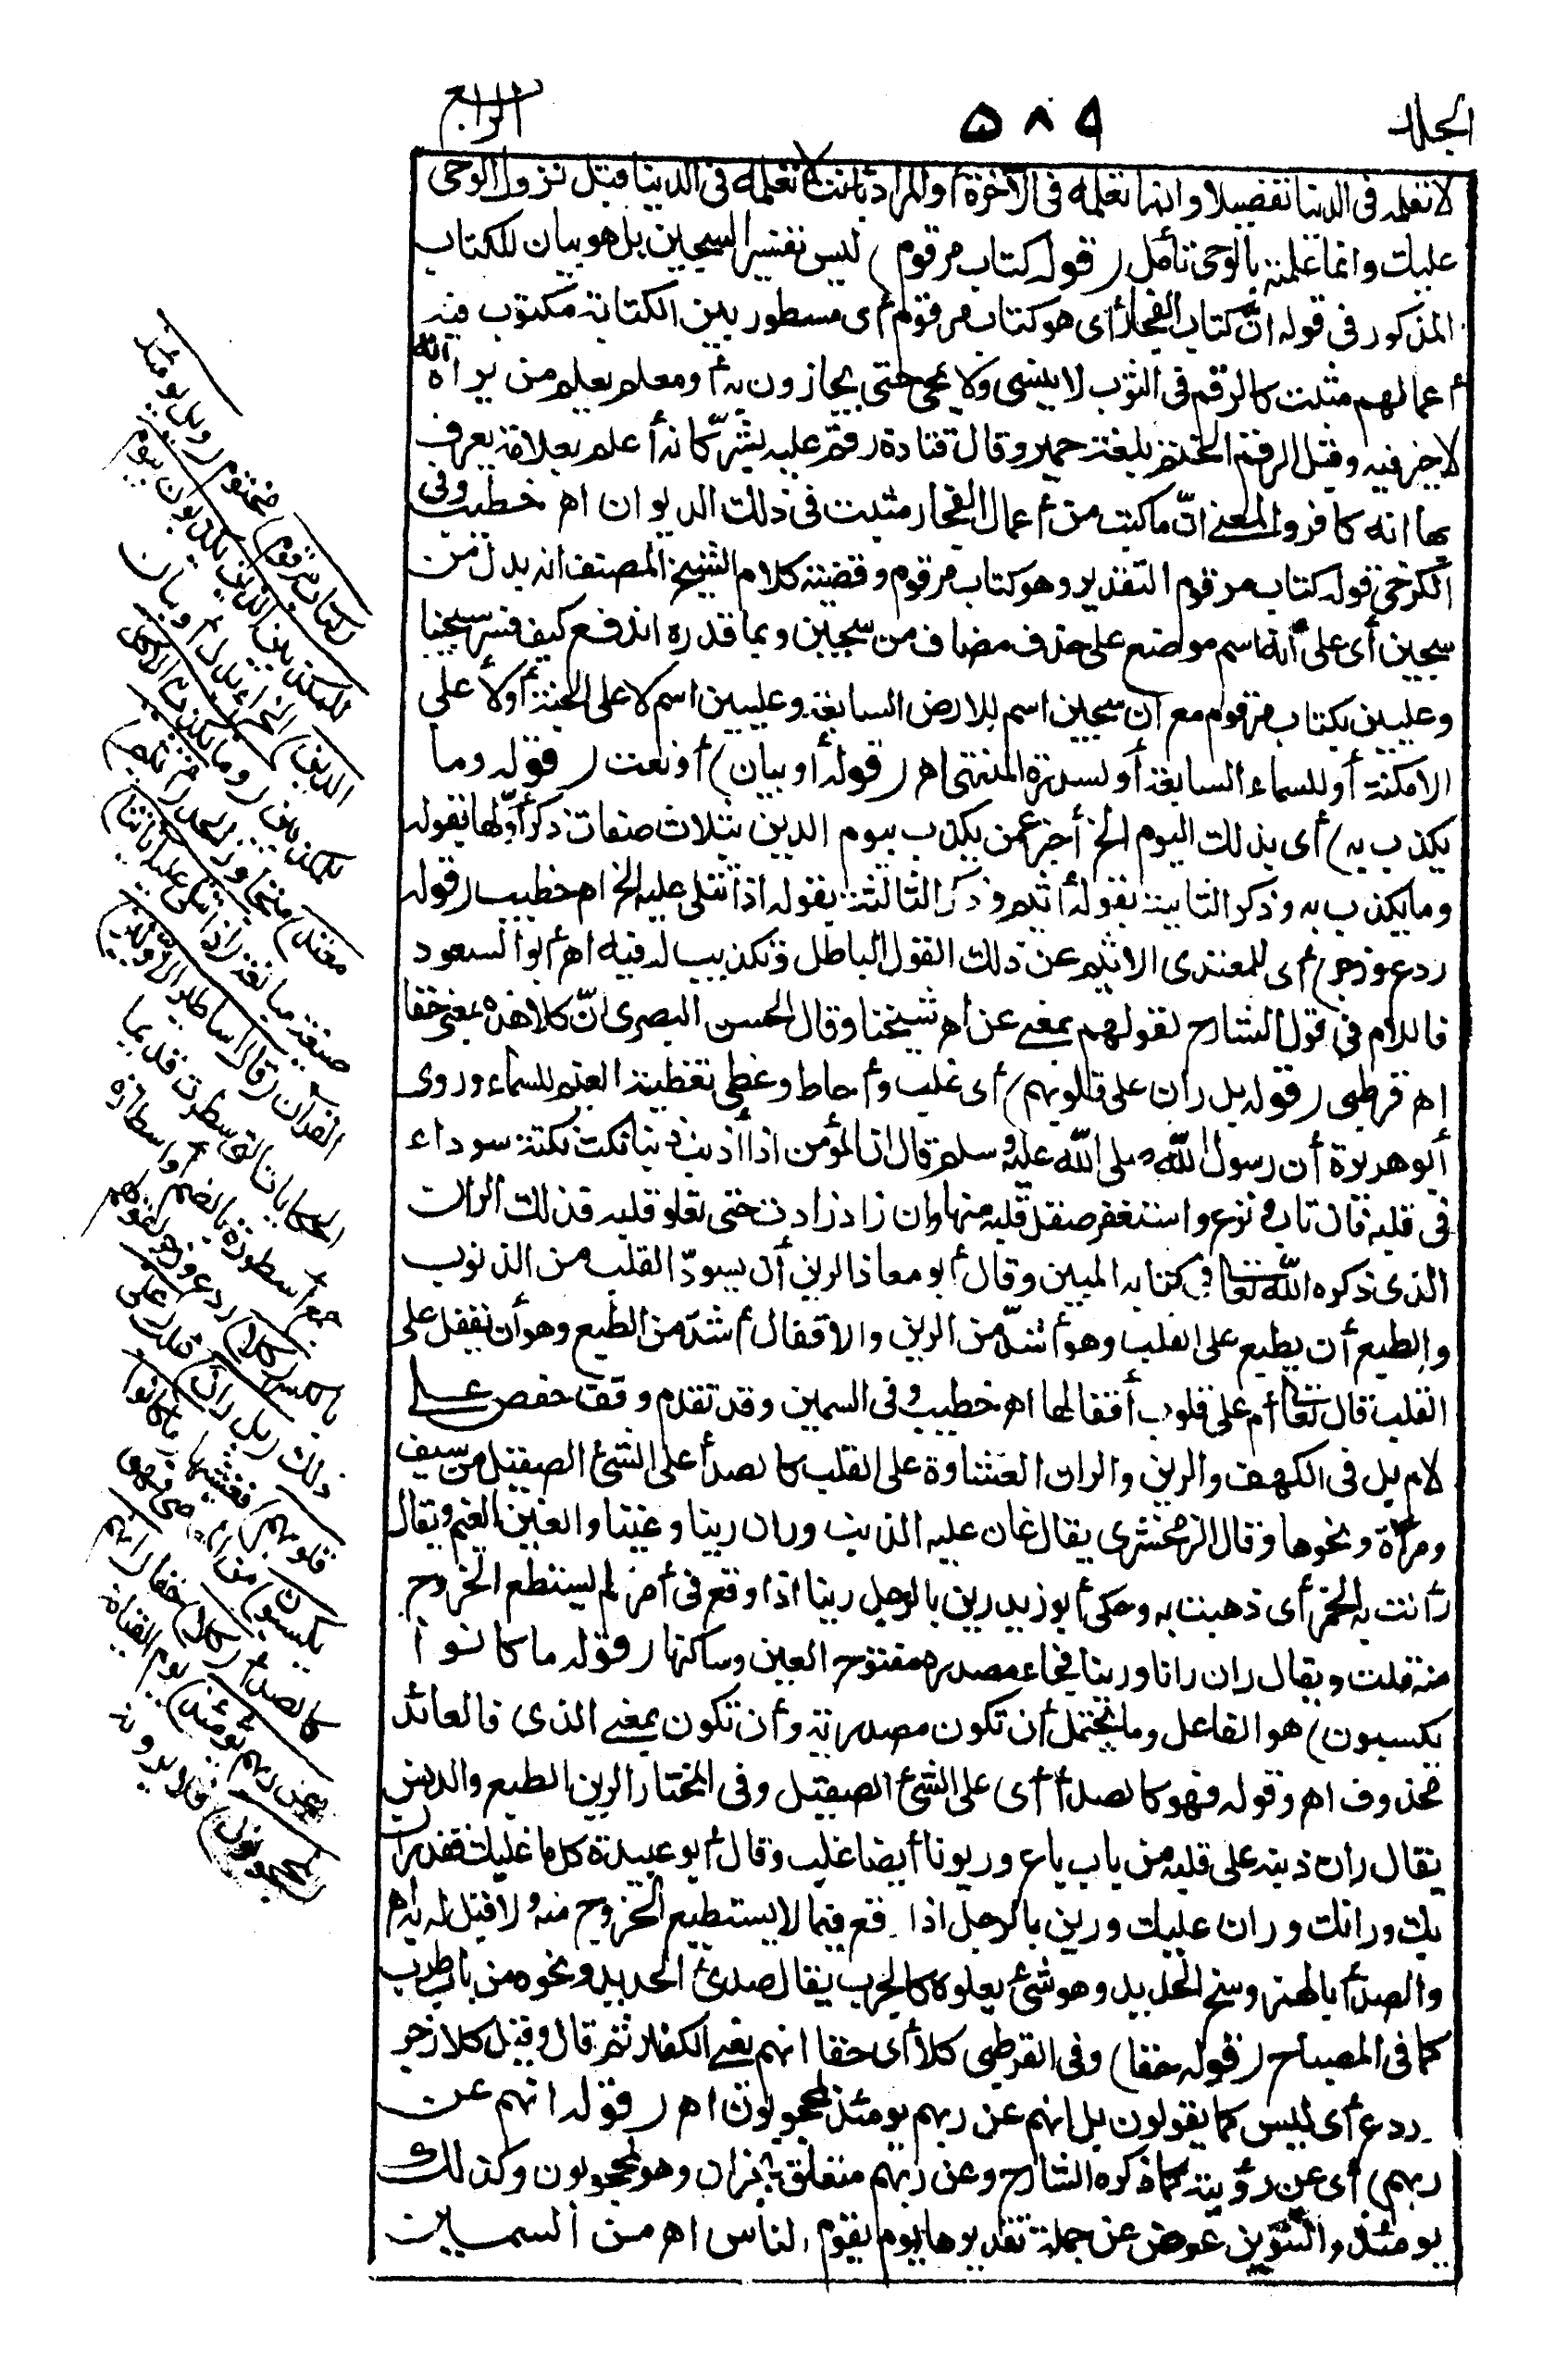 المجلد
٥٨٩
الرابع
لا تعلمه فى الدنيا تفصيلا وانما تعلمه فى الآخرة أو المراد بأنت لا تعلمه فى الدنيا قبل نزول الوحى
عليك وانما علمته بالوحى تأمل (قوله كتاب مرقوم) ليس تفسيرا لسجين بل هو بيان للكتاب
المذكور فى قوله انّ كتاب الفجار أى هو كتاب مرقوم أى مسطور بين الكتابة مكتوب فيه
أعمالهم مثبت كالرقم فى الثوب لا ينسى ولا يمحى حتى يجازون به أو معلم يعلم من يراه أنه
لا خير فيه وقيل الرقم الختم بلغة حمير وقال قتادة رقم عليه بشرّ كانه أعلم بعلامة يعرف
بها انه كافر والمعنى انّ ما كتب من أعمال الفجار مثبت فى ذلك الديوان اهـ خطيب وفى
الكرخى قوله كتاب مرقوم التقدير وهو كتاب مرقوم وقضية كلام الشيخ المصنف انه بدل من
سجين أى على أنه اسم موضع على حذف مضاف من سجين وبما قدره اندفع كيف فسر سجينا
وعليين بكتاب مرقوم مع أن سجين اسم للارض السابعة وعليين اسم لاعلى الجنة أو لأعلى
الامكنة أو للسماء السابعة أو لسدرة المنتهى اهـ (قوله أو بيان) أو نعت (قوله وما
يكذب به) أى بذلك اليوم الخ أخبر عمن يكذب بيوم الدين بثلاث صفات ذكر أوّلها بقوله
وما يكذب به وذكر الثانية بقوله أثيم وذكر الثالثة بقوله اذا تتلى عليه الخ اهـ خطيب (قوله
ردع وزجر) أى للمعتدى الاثيم عن ذلك القول الباطل وتكذيب له فيه اهـ أبو السعود
فاللام فى قول الشارح لقولهم بمعنى عن اهـ شيخنا وقال الحسن البصرى انّ كلا هذه بمعنى حقا
اهـ قرطبى (قوله بل ران على قلوبهم) أى غلب وأحاط وغطى تغطية الغيم للسماء وروى
أبو هريرة أن رسول الله صلى الله عليه وسلم قال ان المؤمن اذا أذنب ذنبا نكت نكتة سوداء
فى قلبه فان تاب ونزع واستغفر صقل قلبه منها وان زاد زادت حتى تعلو قلبه فذلك الران
الذى ذكره الله تعالى فى كتابه المبين وقال أبو معاذ الرين أن يسودّ القلب من الذنوب
والطبع أن يطبع على القلب وهو أشدّ من الرين والاقفال أشدّ من الطبع وهو أن يقفل على
القلب قال تعالى أم على قلوب أقفالها اهـ خطيب وفى السمين وقد تقدم وقف حفص على
لام بل فى الكهف والرين والران الغشاوة على القلب كالصدأ على الشئ الصقيل من سيف
ومرآة ونحوها وقال الزمخشرى يقال غان عليه الذنب وران رينا وغينا والغين الغيم ويقال
رانت به الخمر أى ذهبت به وحكى أبو زيد رين بالرجل رينا اذا وقع فى أمر لم يستطع الخروج
منه قلت ويقال ران رانا ورينا فجاء مصدره مفتوح العين وساكنها (قوله ما كانوا
يكسبون) هو الفاعل وما يحتمل أن تكون مصدرية وأن تكون بمعنى الذى فالعائد
محذوف اهـ وقوله فهو كالصدأ أى على الشئ الصقيل وفى المختار الرين الطبع والدنس
يقال ران ذنبه على قلبه من باب باع وريونا أيضا غلب وقال أبو عبيدة كل ما غلبك فقد ران
بك ورانك وران عليك ورين بالرجل اذا وقع فيما لا يستطيع الخروج منه ولا قبل له به اهـ
والصدأ بالهمز وسخ الحديد وهو شئ يعلوه كالجرب يقال صدئ الحديد ونحوه من باب طرب
كما فى المصباح (قوله حقا) وفى القرطبى كلا أى حقا انهم يعنى الكفار ثم قال وقيل كلا زجر
ردع أى ليس كما يقولون بل انهم عن ربهم يومئذ لمحجوبون اهـ (قوله انهم عن
ربهم) أى عن رؤيته كما ذكره الشارح وعن ربهم متعلق بخبران وهو لمحجوبون وكذلك
يومئذ والتنوين عوض عن جملة تقديرها يوم يقوم الناس اهـ من السمين
(كتاب مرقوم) مختوم (ويل يومئذ
للمكذبين الذين يكذبون بيوم
الدين) الجزاء بدل أو بيان
للمكذبين (وما يكذب به الا كل
معتد) متجاوز للحد (أثيم)
صيغة مبالغة (اذا تتلى عليه آياتنا)
القرآن (قال أساطير الاوّلين)
الحكايات التى سطرت قديما
جمع أسطورة بالضم أو اسطارة
بالكسر (كلا) ردع وزجر لقولهم
ذلك (بل ران) غلب (على
قلوبهم) فغشيها (ما كانوا
يكسبون) من المعاصى فهو
كالصدأ (كلا) حقا (انهم
عن ربهم يومئذ) يوم القيامة
(لمحجوبون) فلا يرونه